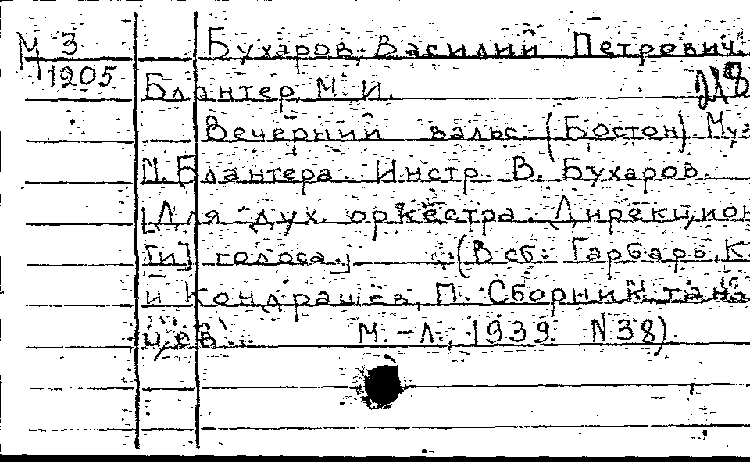 М 3 Бухаров, Василий Петрович.
1905 Блантер, М. И.
Вечерний вальс (Бостон) Муз
М. Блантера. Инстр. В. Бухаров.
[Для дух. оркестра. Дирекцион
[и] голоса.] (В сб.: Гарбарь, К.
и Кондрашев, П. Сборник тан-
цев. М.-Л., 1939. N 38).